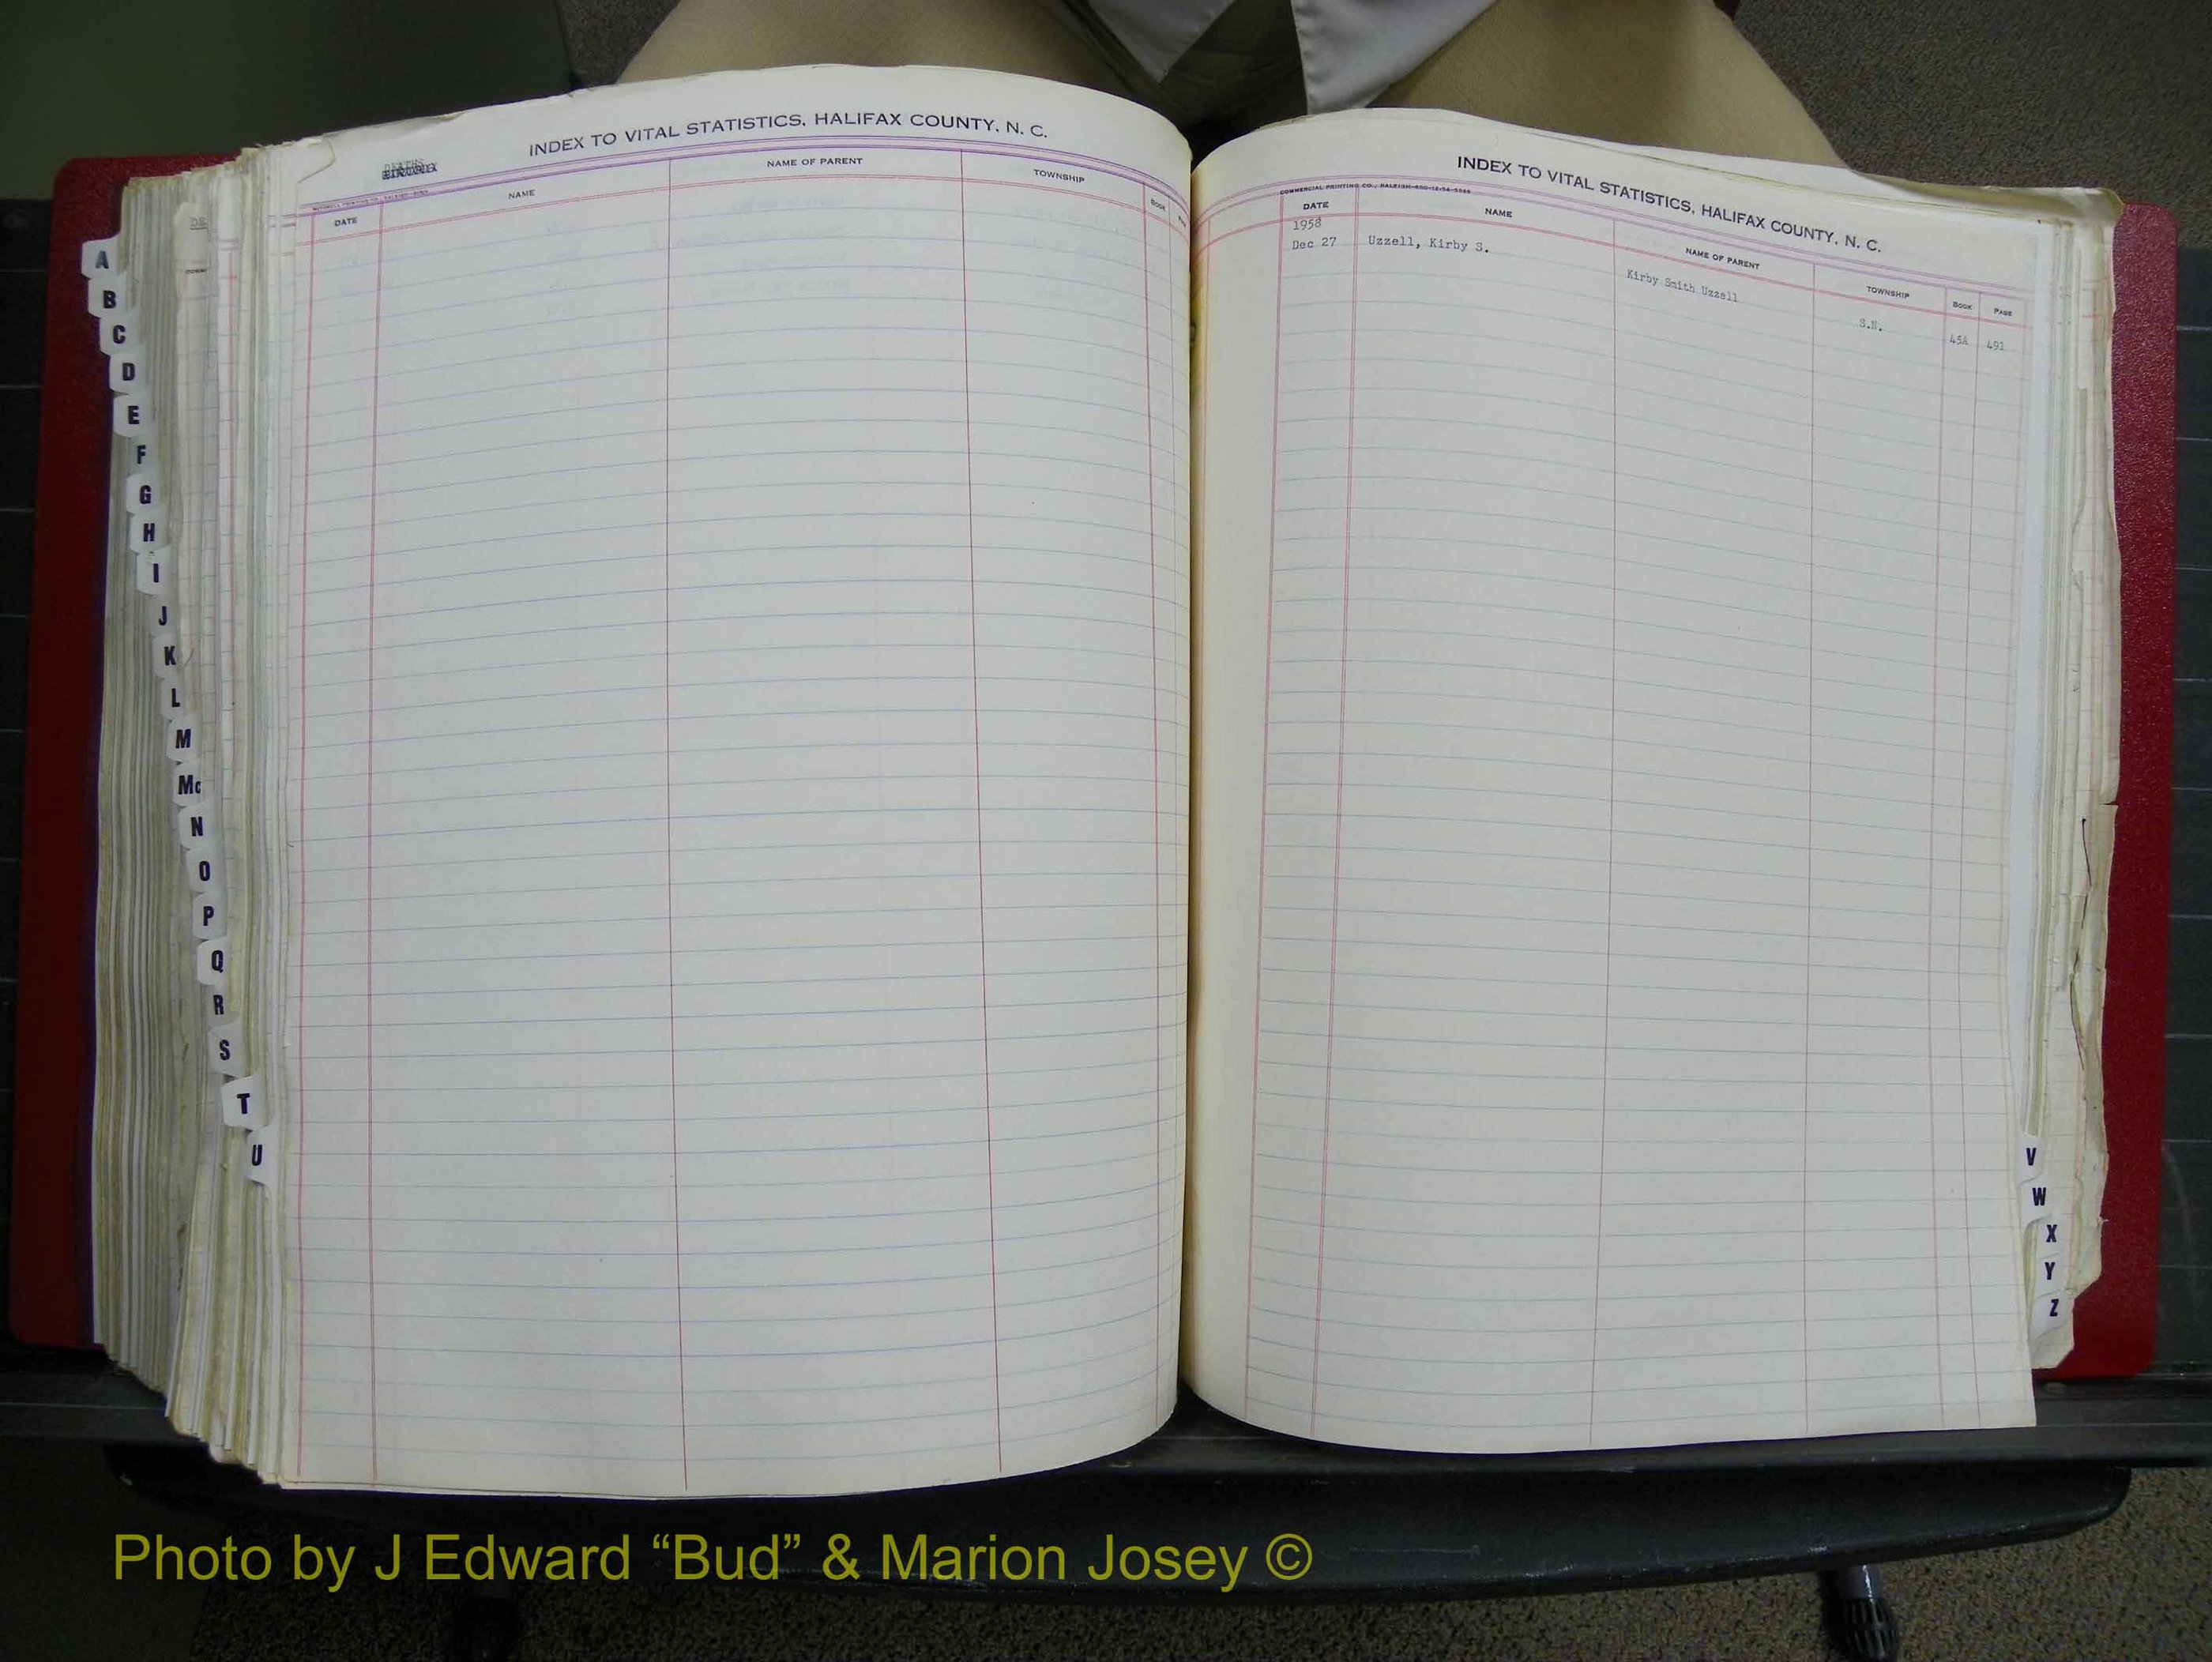 INDEX TO VITAL STATISTICS, HALIFAX COUNTY, N. C.
DATE NAME NAME OF PARENT TOWNSHIP BOOK
INDEX TO VITAL STATISTICS, HALIFAX COUNTY, N. C.
COMMERCIAL PRINTING CO., RALEIGH
DATE NAME NAME OF PARENT TOWNSHIP BOOK PAGE
1958
Dec 27 Uzzell, Kirby S. Kirby Smith Uzzell 45A 491
A
B
C
D
E
F
G
H
I
J
K
L
M
Mc
N
O
P
Q
R
S
T
U
V
W
X
Y
Z
Photo by J Edward “Bud” & Marion Josey ©